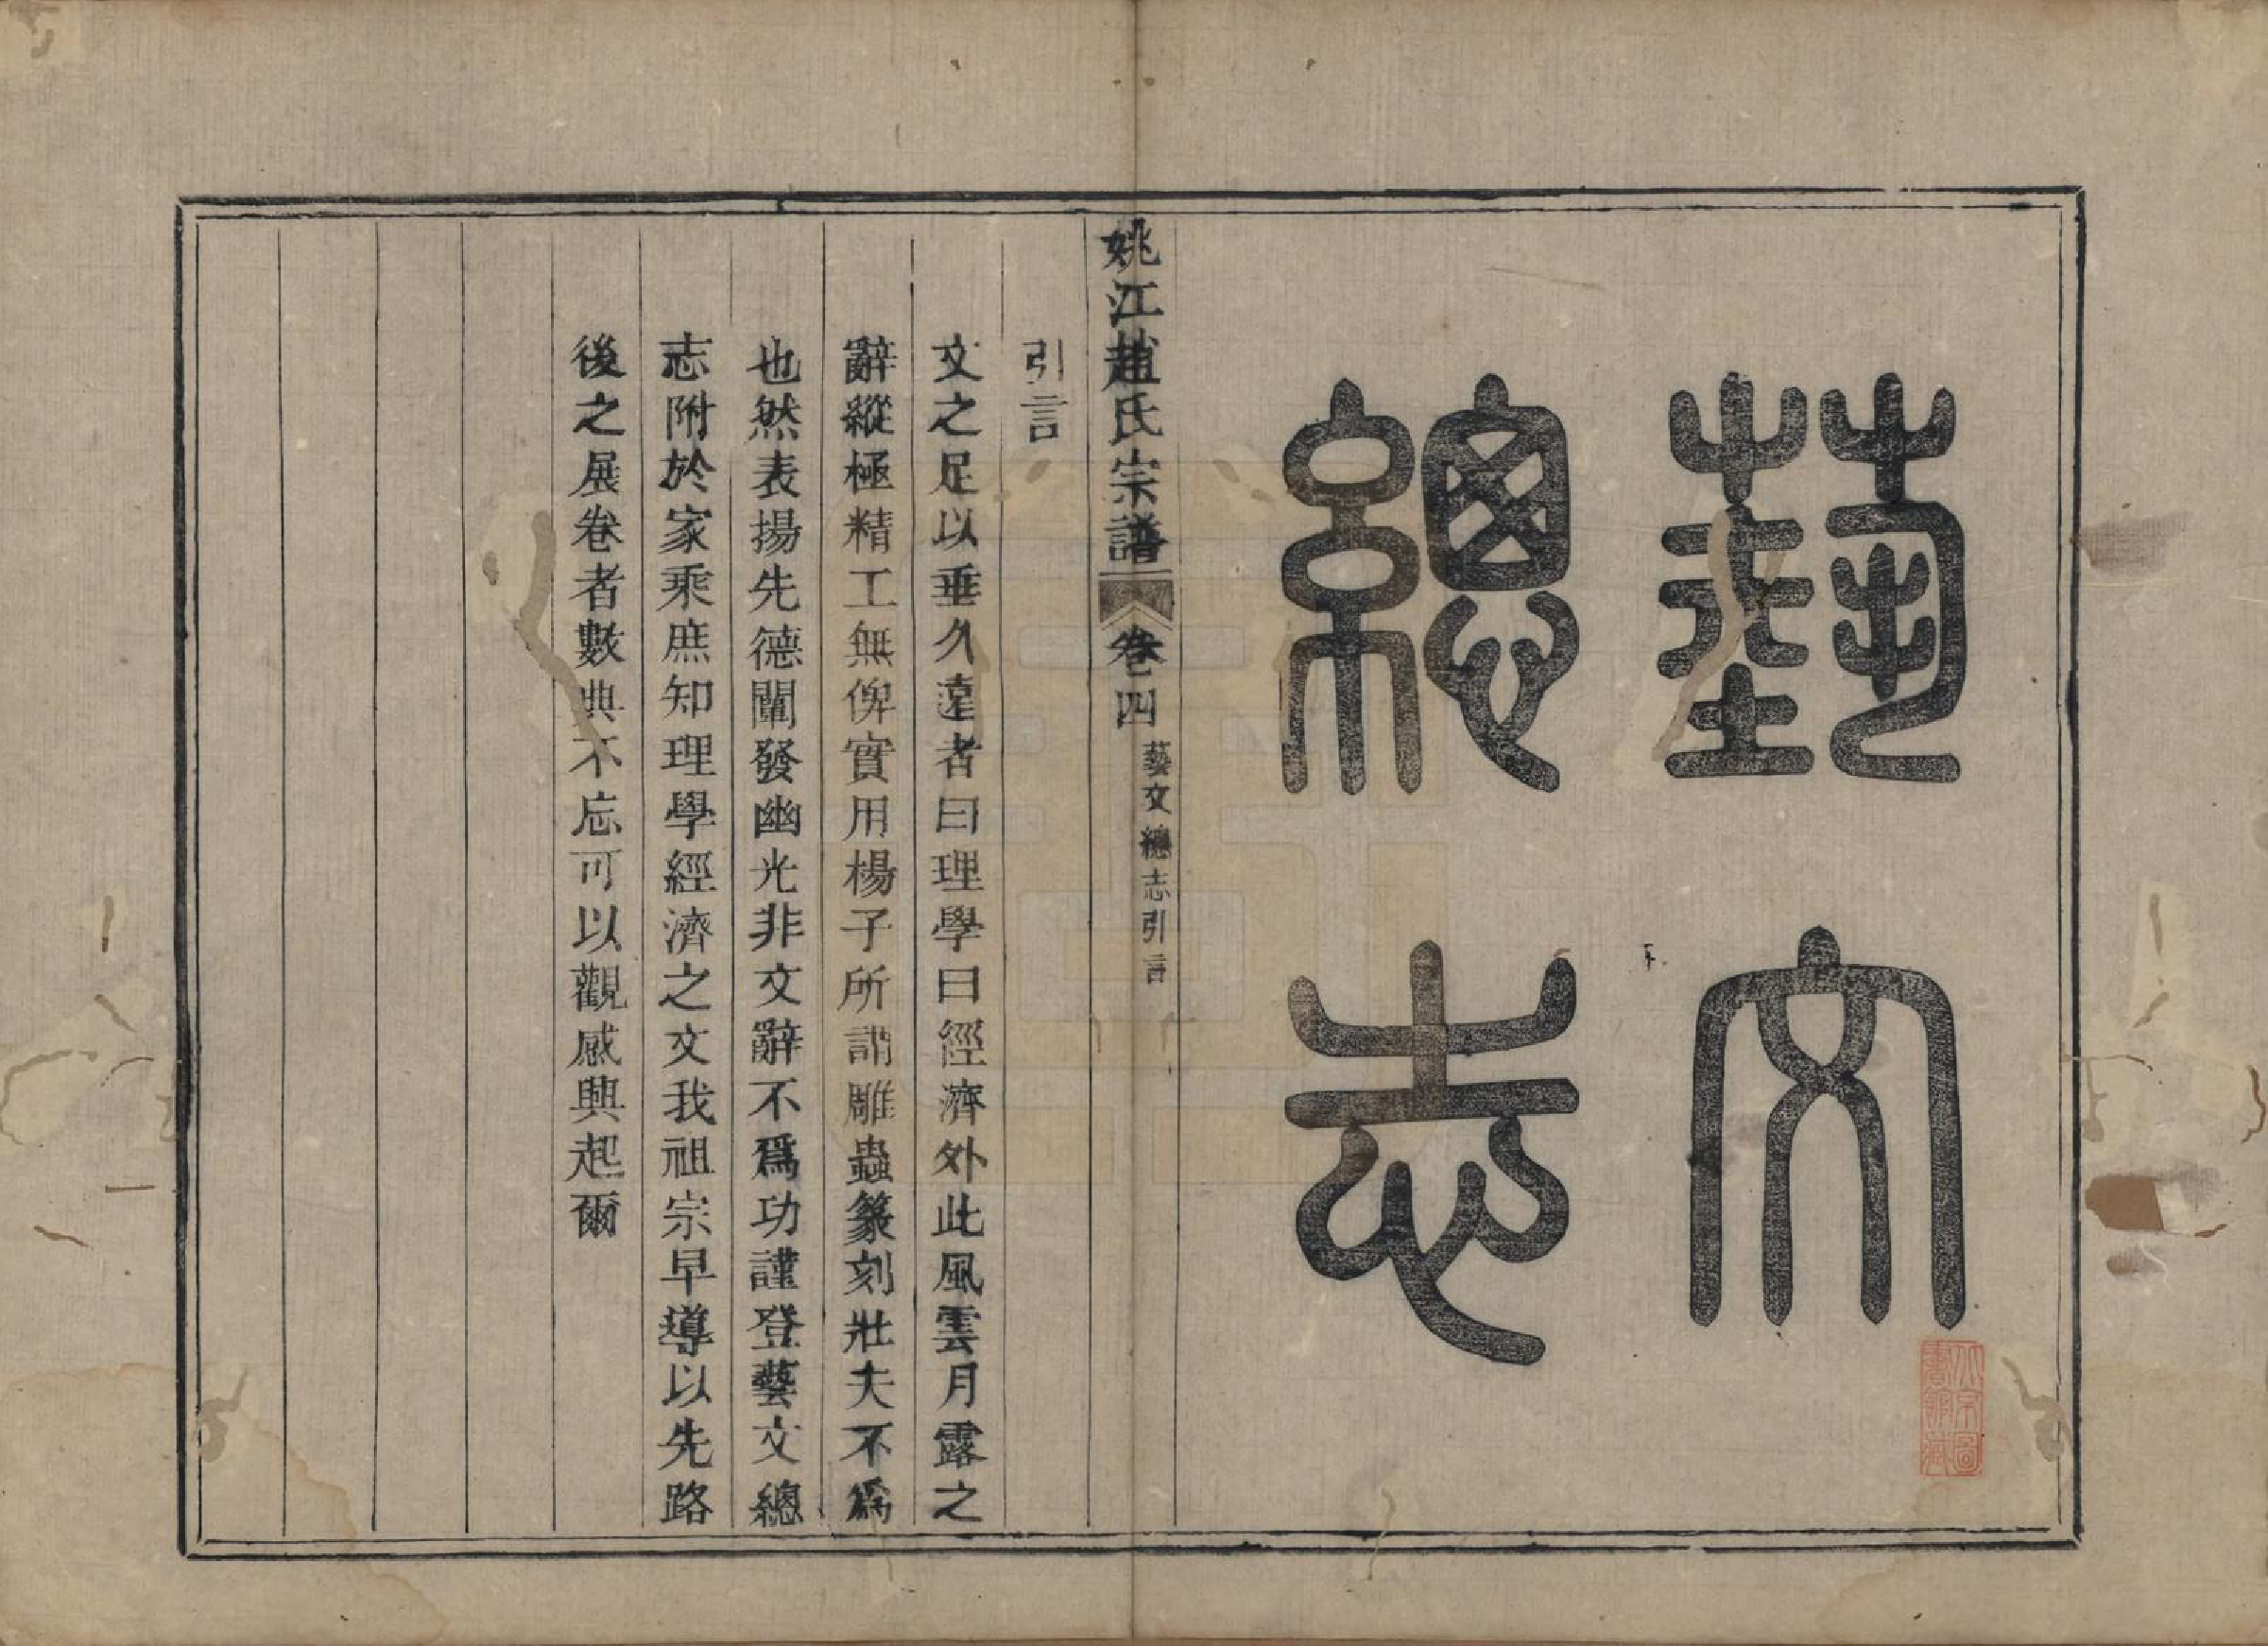 藝文
總志
北京圖
書館藏
姚江趙氏宗譜 卷四 藝文總志引言
引言
文之足以垂久遠者曰理學曰經濟外此風雲月露之
辭縱極精工無俾實用楊子所謂雕蟲篆刻壯夫不爲
也然表揚先德闡發幽光非文辭不爲功謹登藝文總
志附於家乘庶知理學經濟之文我祖宗早導以先路
後之展卷者數典不忘可以觀感興起爾